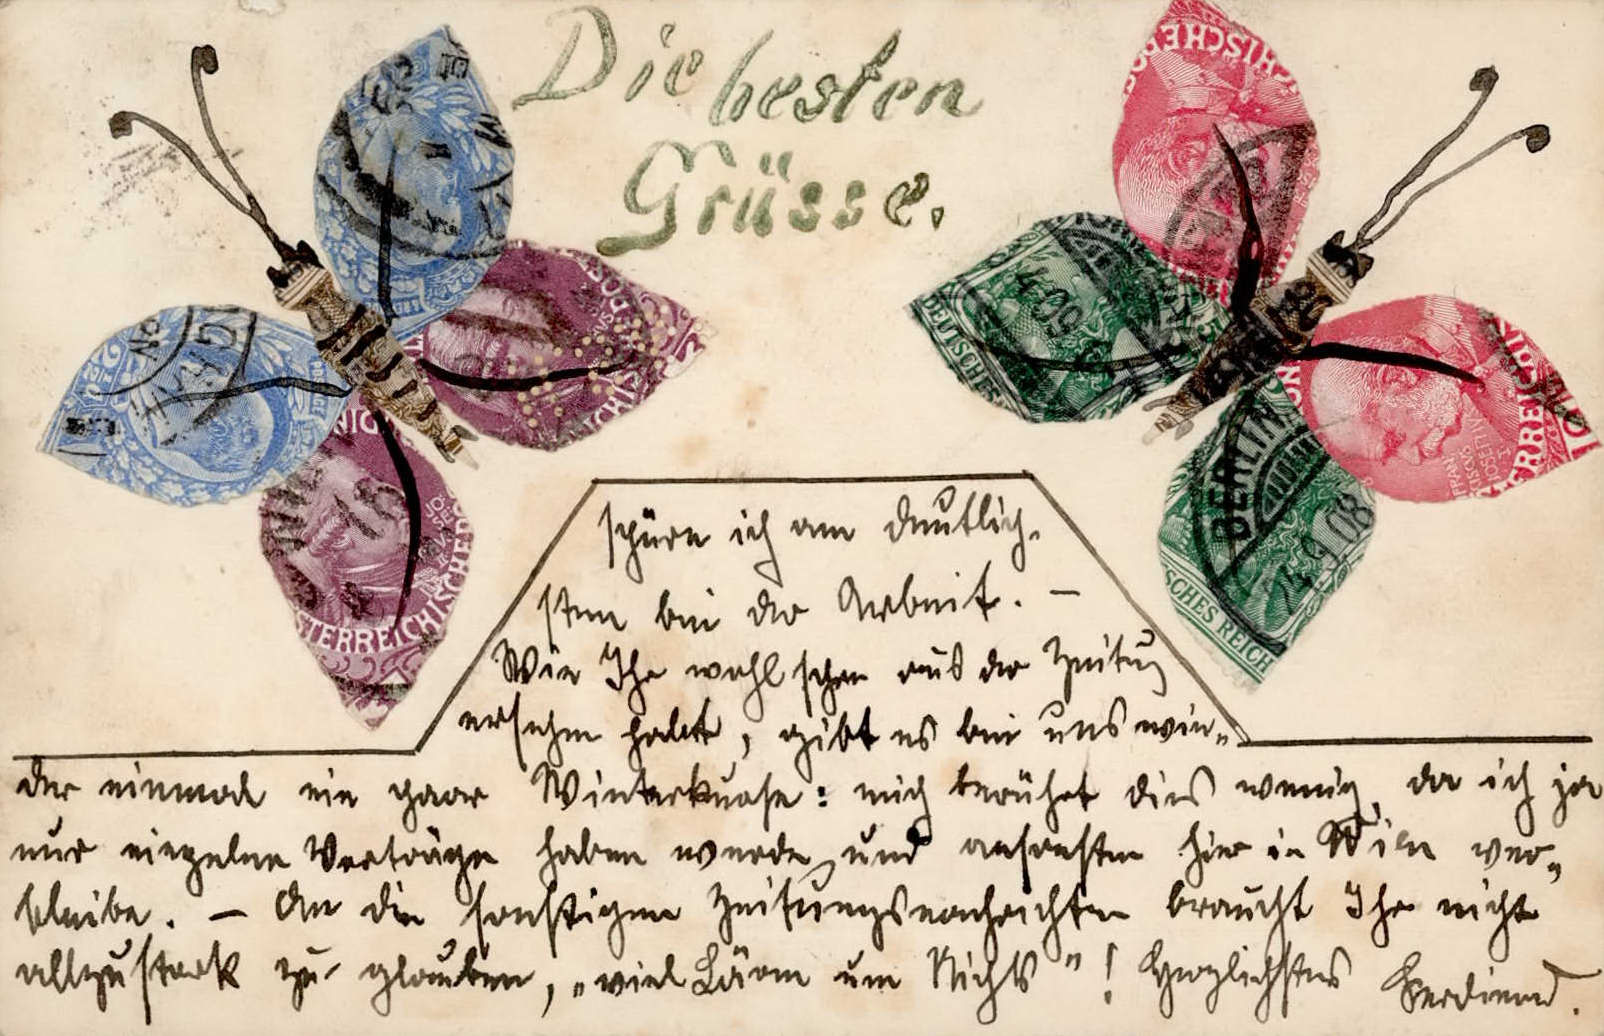 Die besten
Grüsse.
spüre ich am deutlich-
sten bei der Arbeit. –
Wie Ihr wohl schon aus der Zeitung
ersehen habt, gibt es bei uns wie-
der einmal ein paar Winterkurse: mich berührt dies wenig, da ich ja
nur einzelne Vorträge haben werde, und ansonsten hier in Wien ver-
bleibe. – An die sonstigen Zeitungsnachrichten braucht Ihr nicht
allzustark zu glauben, „viel Lärm um Nichts"! Herzlichstes Ferdinand.
ÖSTERREICHISCHE
DEUTSCHES
BERLIN
SCHES REICH